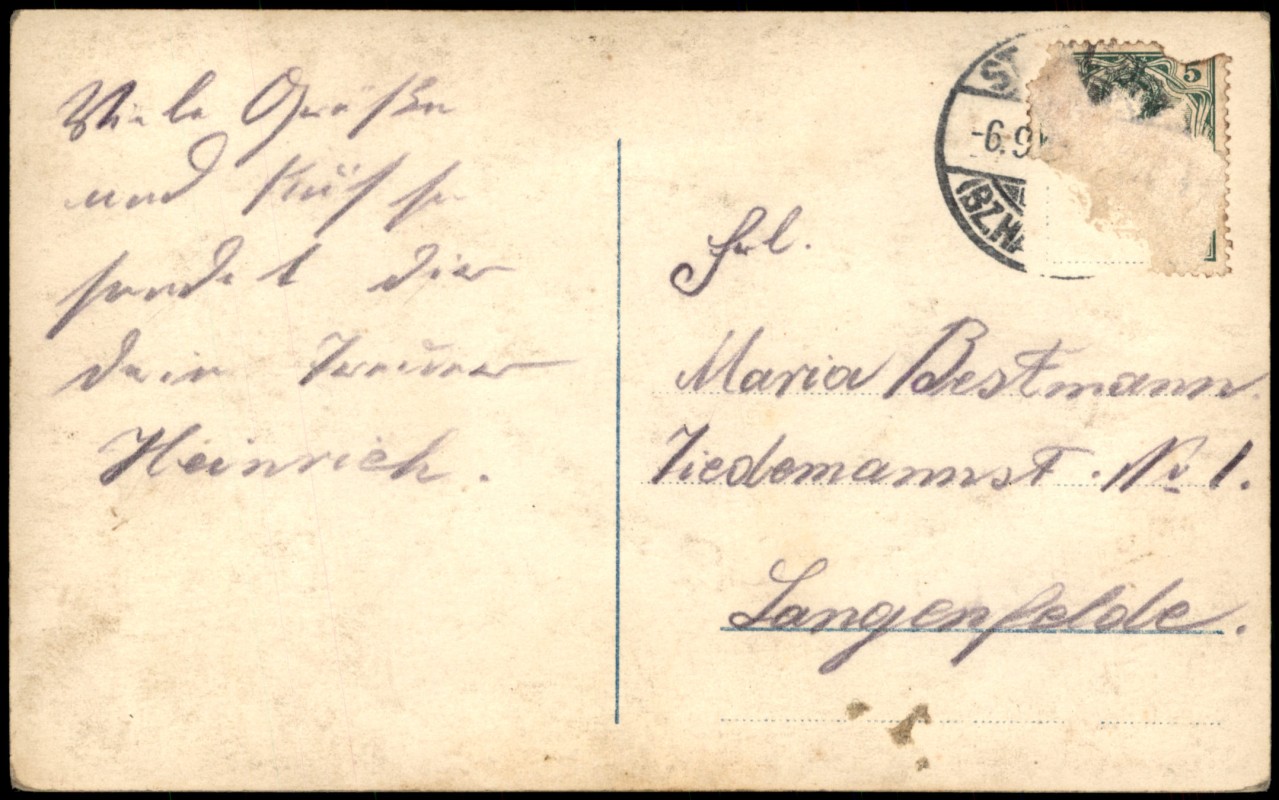 Viele Grüße
und Küsse
sendet dir
dein Treuer
Heinrich.
5
-6.9
(BZ.H
Frl.
Maria Bestmann
Tiedemannst. No 1.
Langenfelde.